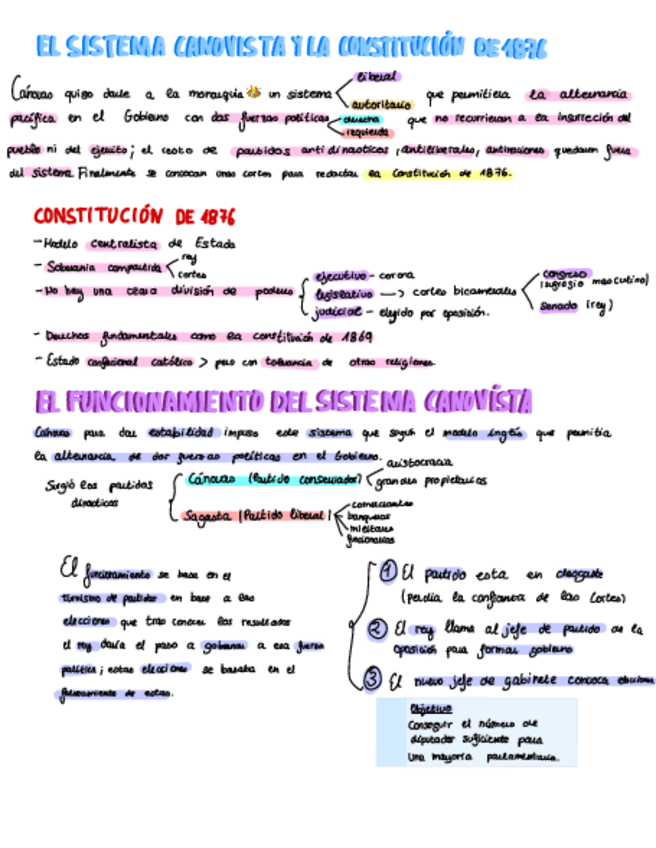 EL SISTEMA CANOVISTA Y LA CONSTITUCIÓN DE 1876
liberal
Cánovas quiso darle a la monarquía un sistema que permitiera la alternancia
autoritario
pacífica en el Gobierno con dos fuerzas políticas que no recurrieran a la insurrección del
derecha
izquierda
pueblo ni del ejército; el resto de partidos antidinasticos, antiliberales, quedaron fuera
del sistema. Finalmente se convocan unas cortes para redactar la Constitución de 1876.
CONSTITUCIÓN DE 1876
- Modelo centralista de Estado
- Soberanía compartida
rey
cortes
- No hay una clara división de poderes
ejecutivo - corona
legislativo -> cortes bicamerales
judicial - elegido por oposición.
congreso
(sufragio masculino)
senado (rey)
- Derechos fundamentales como la constitución de 1869
- Estado confesional católico > pero con tolerancia de otras religiones.
EL FUNCIONAMIENTO DEL SISTEMA CANOVÍSTA
Cánovas para dar estabilidad impuso este sistema que según el modelo inglés que permitía
la alternancia de dos fuerzas políticas en el Gobierno.
Surgió los partidos
dinásticos
Cánovas (Partido conservador)
aristocracia
grandes propietarios
Sagasta (Partido liberal)
comerciantes
banqueros
militares
funcionarios
El funcionamiento se basa en el
turnismo de partidos en base a las
elecciones que tras conocer los resultados
el rey daría el paso a gobernar a esa fuerza
política; estas elecciones se basaba en el
falseamiento de estas.
1 El partido esta en desgaste
(perdía la confianza de las Cortes)
2 El rey llama al jefe de partido de la
oposición para formar gobierno
3 El nuevo jefe de gabinete convoca elecciones
Objetivo
Conseguir el número de
diputados suficiente para
una mayoría parlamentaria.